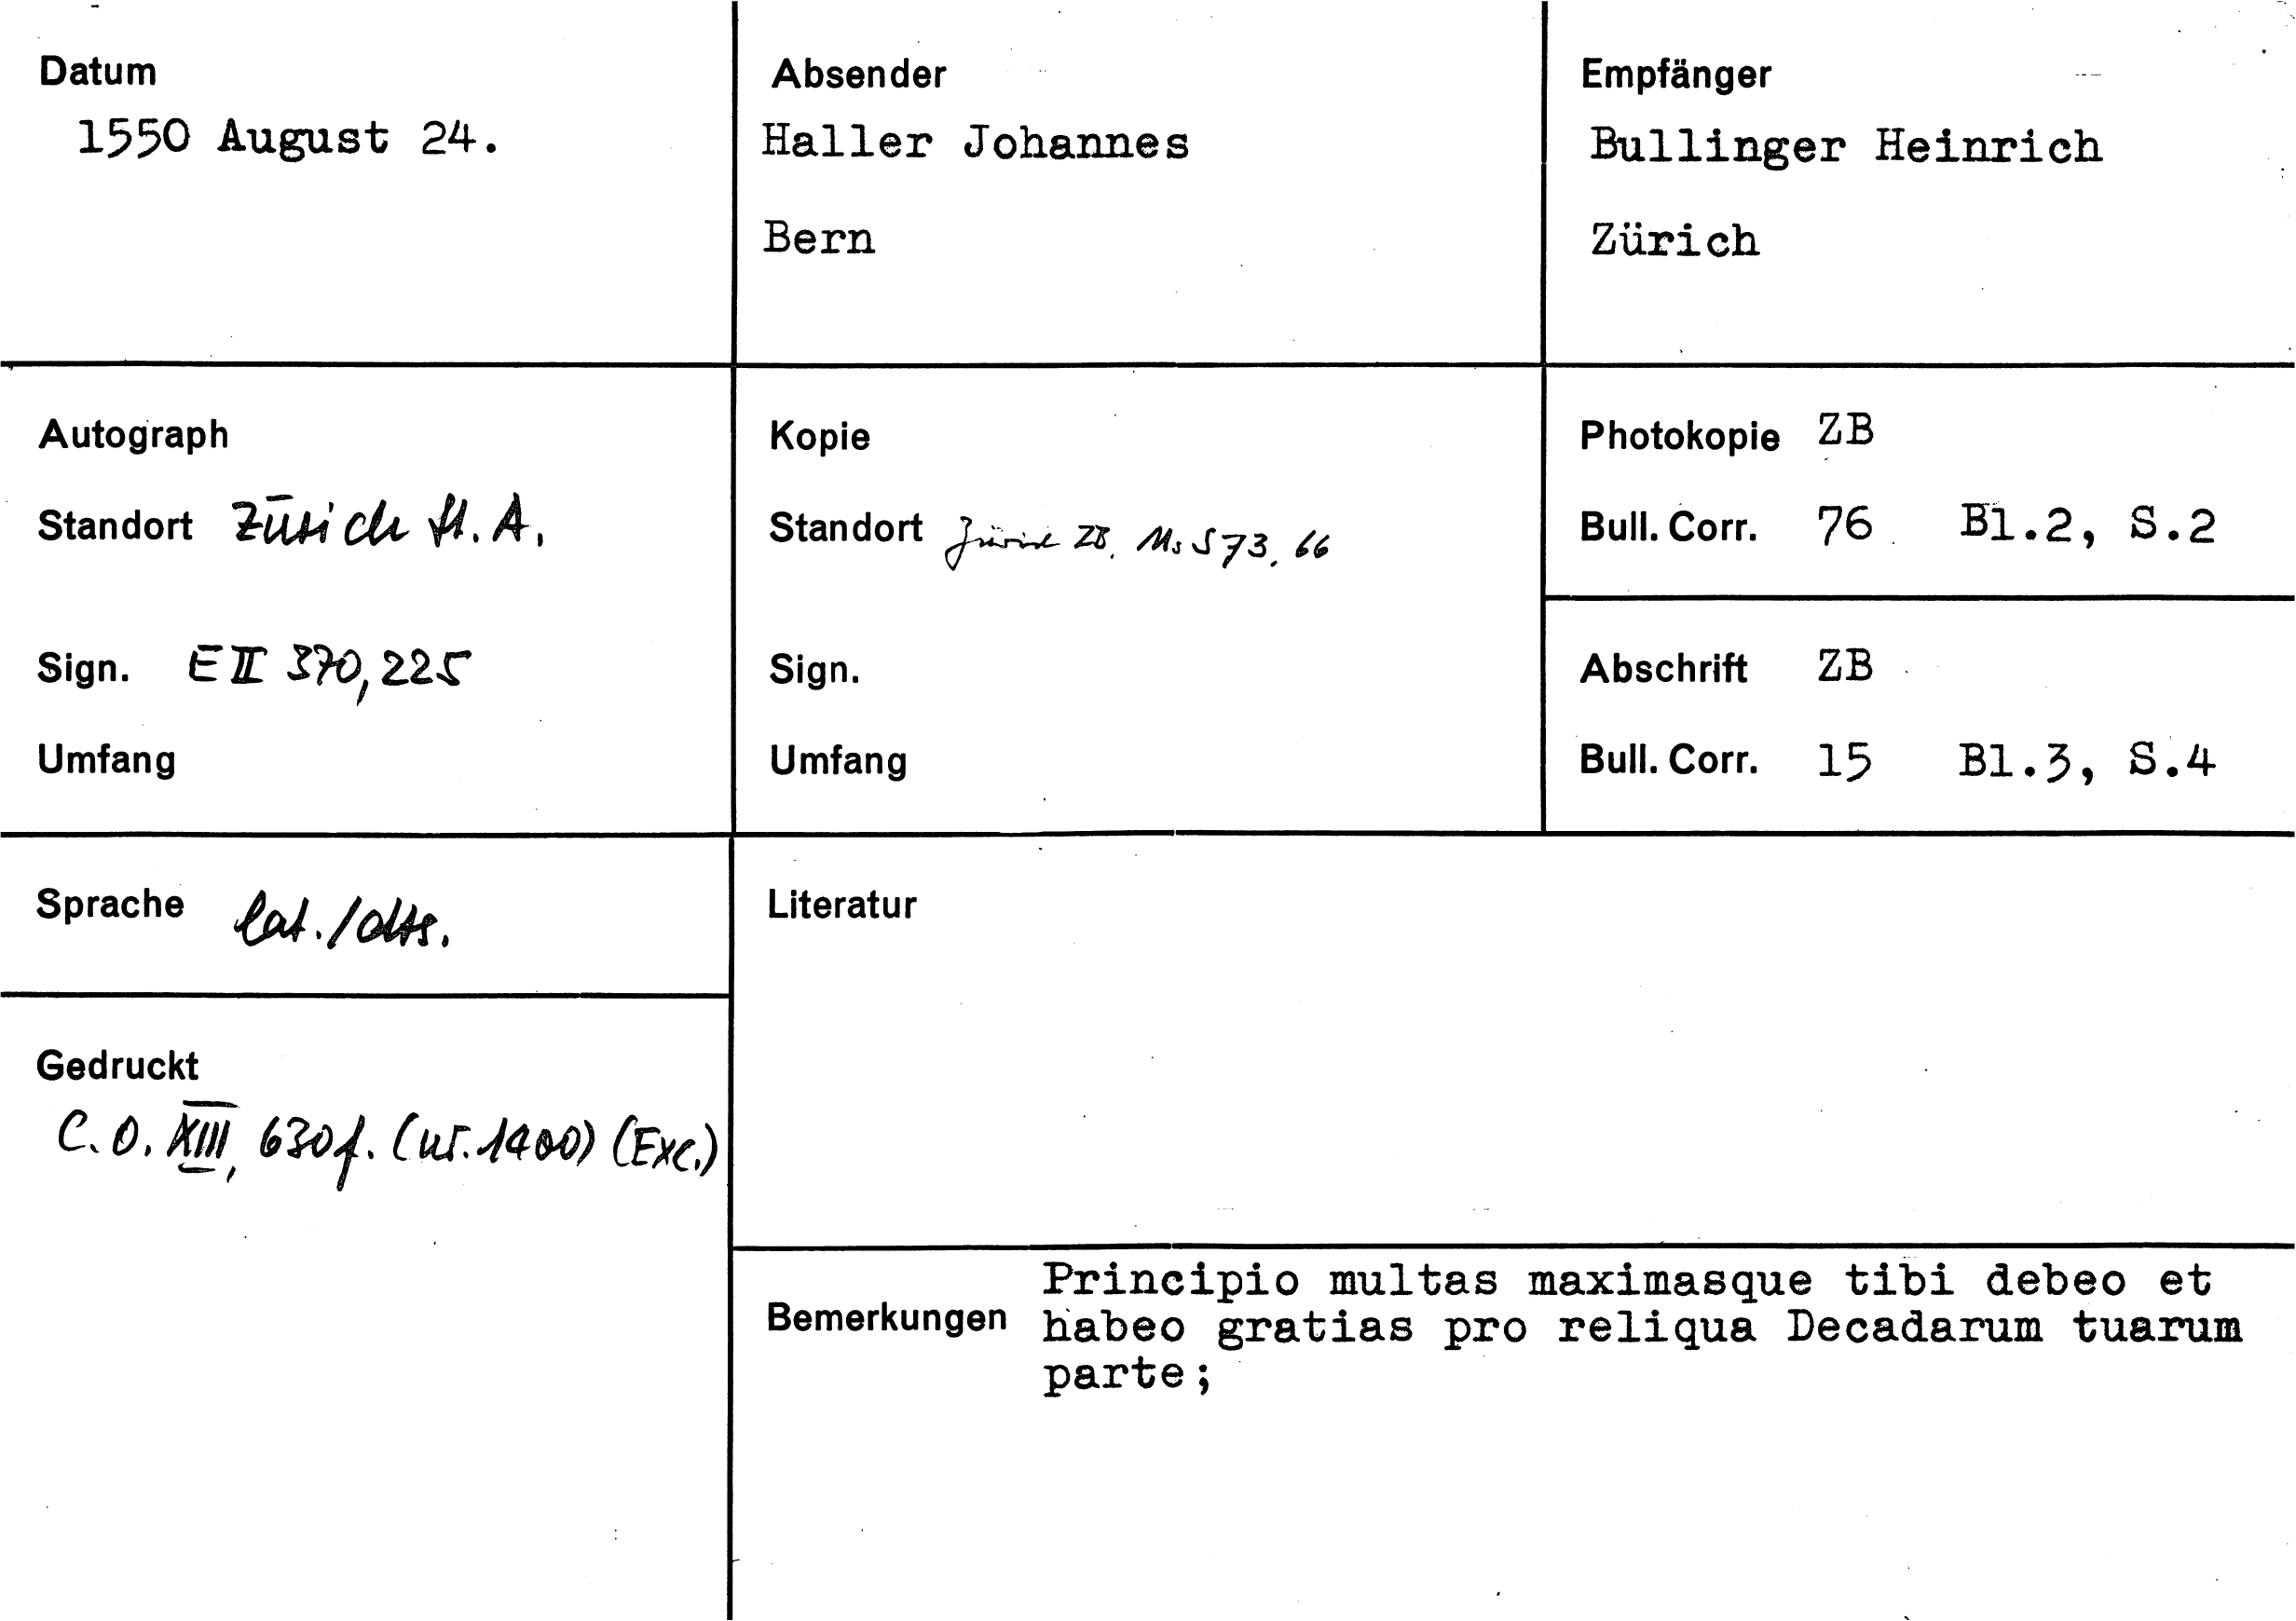 Datum
1550 August 24.
Absender
Haller Johannes
Bern
Empfänger
Bullinger Heinrich
Zürich
Autograph
Standort Zürich St. A.
Sign. E II 370, 225
Umfang
Kopie
Standort Zürich ZB. Ms S 73, 66
Sign.
Umfang
Photokopie ZB
Bull. Corr. 76 Bl.2, S.2
Abschrift ZB
Bull. Corr. 15 Bl.3, S.4
Sprache lat./dts.
Literatur
Gedruckt
C. O. XIII, 630f. (nr. 1400) (Exc.)
Bemerkungen
Principio multas maximasque tibi debeo et
habeo gratias pro reliqua Decadarum tuarum
parte;